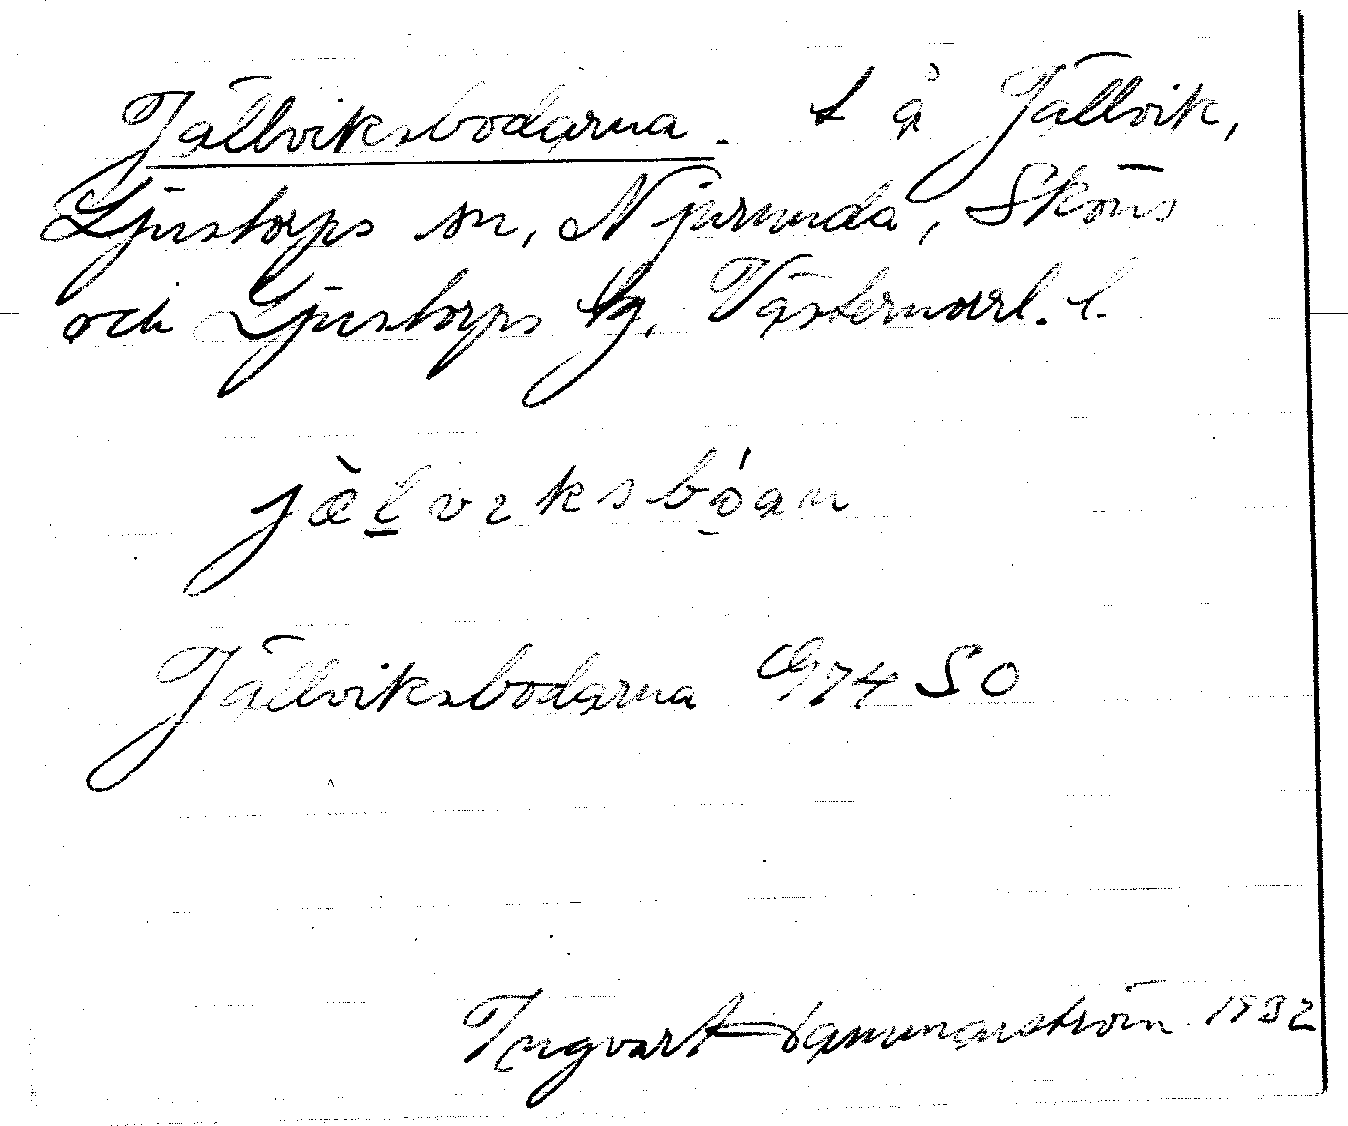 Jällviksbodarna. t å Jällvik,
Ljustorps sn, Njurunda, Sköns
och Ljustorps tg. Västernorrl. l.
jæ̀lvɩksbóan
Jällviksbodarna G74 SO
Ingvart Hammarström 1932